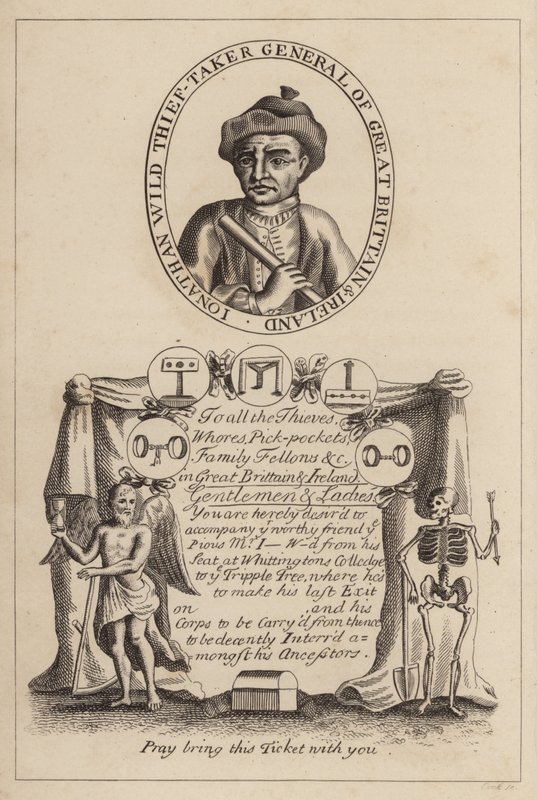 IONATHAN WILD THIEF-TAKER GENERAL OF GREAT BRITTAIN & IRELAND ·
To all the Thieves,
Whores, Pick-pockets,
Family Fellows &c.
in Great Brittain & Ireland.
Gentlemen & Ladies
You are hereby desir'd to
accompany yͤ worthy friend yͤ
Pious Mʳ I— W—d from his
Seat at Whittingtons Colledge
to yͤ Tripple Tree, where he's
to make his last Exit
on , and his
Corps to be Carry'd from thence
to be decently Interr'd a=
=mongst his Ancestors.
Pray bring this Ticket with you
Cook sc.